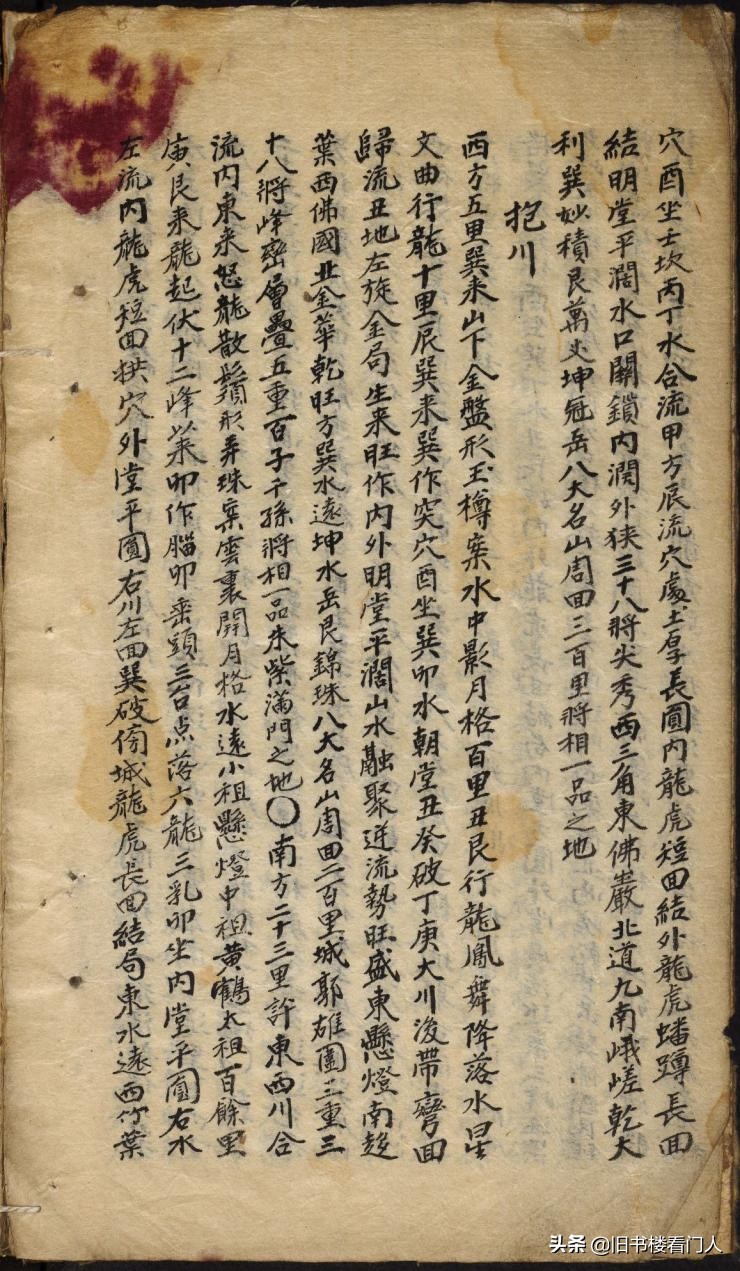 穴酉坐壬坎丙丁水合流甲方辰流穴處土厚長圓内龍虎短回結外龍虎蟠蹲長回
結明堂平濶水口關鎖内濶外狭三十八將尖秀西三角東佛巖北道九南峨嵯乾大
利巽妙積艮萬丈坤冠岳八大名山周回三百里將相一品之地
抱川
西方五里巽来山下金盤形玉樽案水中影月格百里丑艮行龍鳳舞降落水星
文曲行龍十里辰巽来巽作突穴酉坐巽卯水朝堂丑癸破丁庚大川後帶彎回
歸流丑地左旋金局生来旺作内外明堂平濶山水融聚逆流勢旺盛東懸燈南趍
葉西佛國北金華乾旺方巽水遠坤水岳艮錦珠八大名山周回二百里城郭雄圍三重三
十八將峰密層疊五重百子千孫將相一品朱紫滿門之地〇南方二十三里許東西川合
流内東来怒龍散鬚形弄珠案雲裏開月格水遠小祖懸燈中祖黃鶴太祖百餘里
寅艮来龍起伏十二峰来卯作腦卯垂頭三台点落六龍三乳卯坐内堂平圓右水
左流内龍虎短回拱穴外堂平圓右川左回巽破傍城龍虎長回結局東水遠西竹葉
头条 @旧书楼看门人